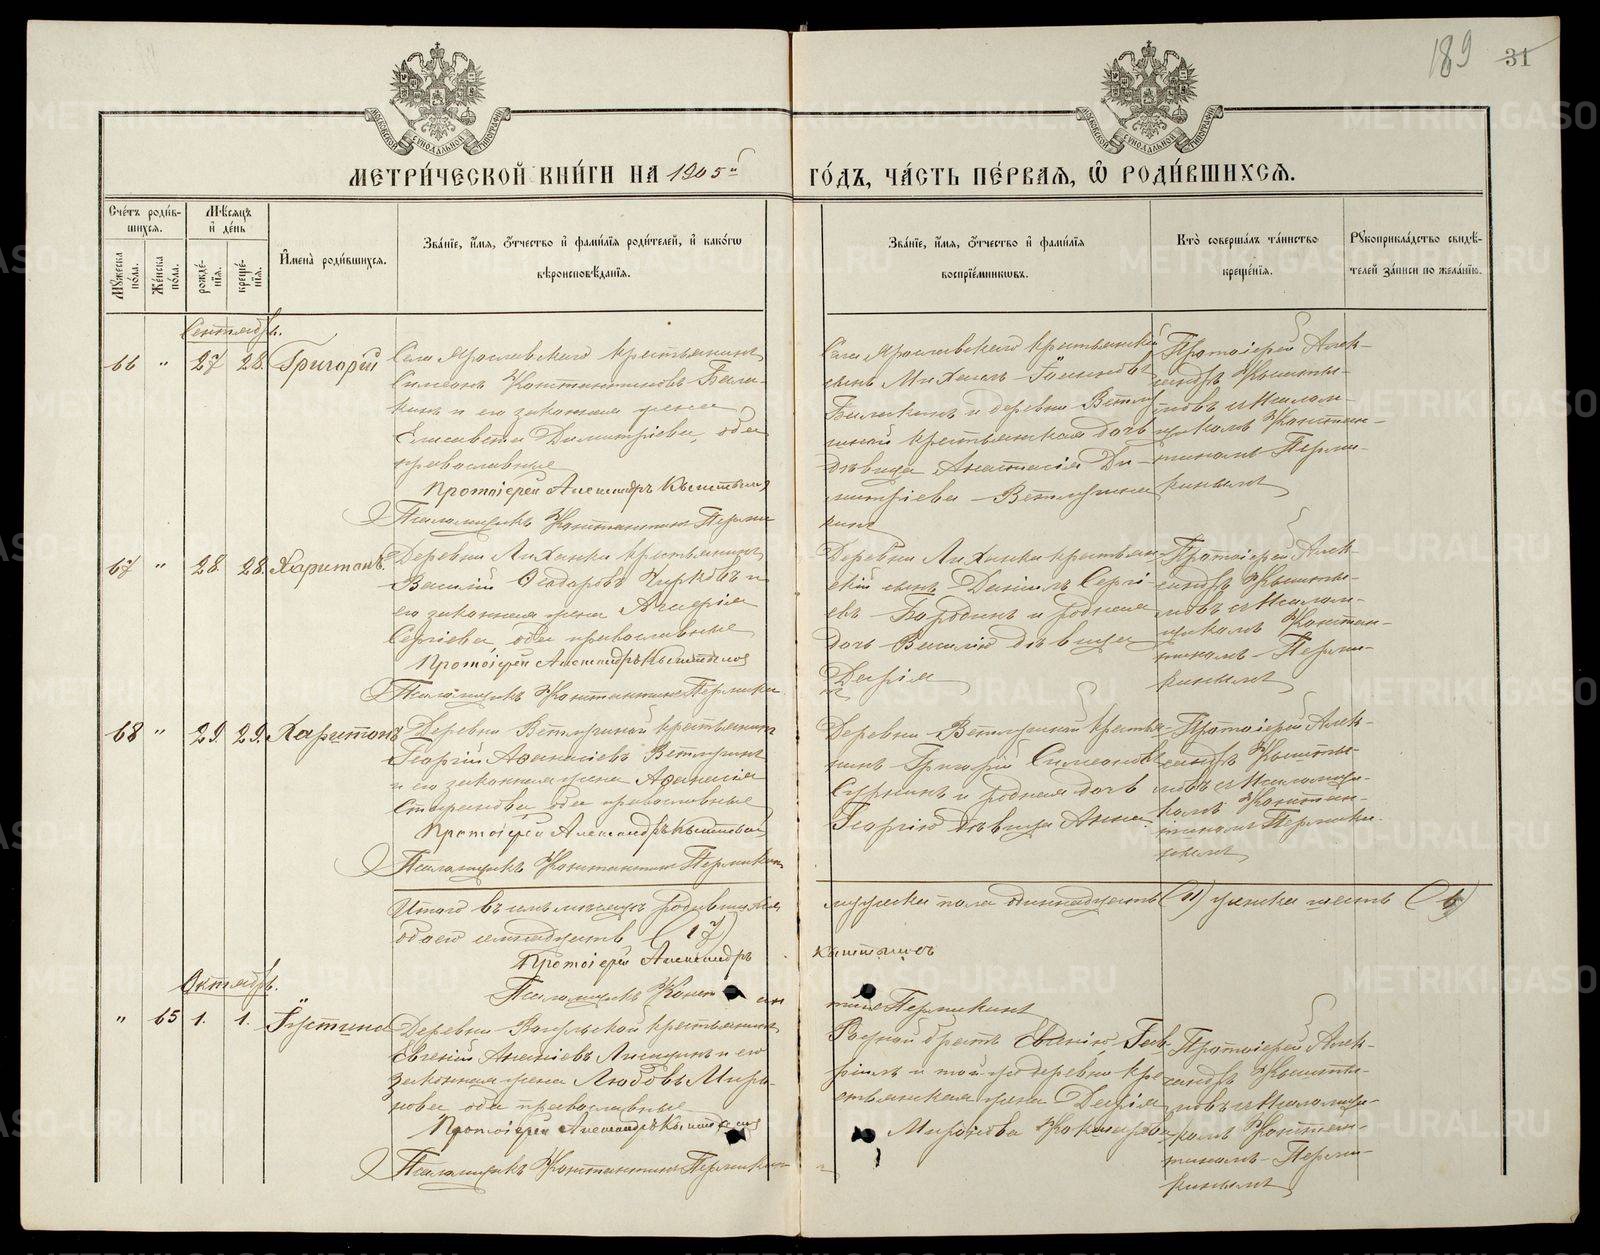 189 31
МОСКОВСКОЙ СѴНОДАЛЬНОЙ ТИПОГРАФІИ
МОСКОВСКОЙ СѴНОДАЛЬНОЙ ТИПОГРАФІИ
МЕТРИ́ЧЕСКОЙ КНИ́ГИ НА 1905й ГО́ДЪ, ЧА́СТЬ ПЕ́РВАѦ, Ѡ҆ РОДИ́ВШИХСѦ.
Сче́тъ роди́в-
шихсѧ.
Мꙋжеска по́ла.
Же́нска по́ла.
Мѣ́сѧцъ
и҆ де́нь
рожде́-
нїѧ.
креще́-
нїѧ.
И҆мена̀ роди́вшихсѧ.
Зва́нїе, и҆́мѧ, ѻ҆́тчество и҆ фами́лїѧ роди́телей, и҆ како́гѡ
вѣроисповѣ́данїѧ.
Зва́нїе, и҆́мѧ, ѻ҆́тчество и҆ фами́лїѧ
воспрїе́мникѡвъ.
Кто̀ соверша́лъ та́инство
креще́нїѧ.
Рꙋкоприкла́дство свидѣ́-
телей за́писи по жела́нїю.
Сентябрь.
66 " 27 28. Григорій
Села Ярославскаго крестьянинъ
Симеонъ Константиновъ Бала-
кинъ и его законная жена
Елисавета Димитріева, оба
православные
Протоіерей Александръ Кыштымов
Псаломщикъ Константинъ Перми
Села Ярославскаго крестьянскій
сынъ Михаилъ
и деревни Ветлу
гиной крестьянская дочь
дѣвица Анастасія Ди-
митріева Ветлугина
Протоіерей Алек-
сандръ Кышты-
мовъ съ псалом-
щикомъ Констан-
тиномъ Перми-
кинымъ
67 " 28. 28. Харитонъ.
Деревни крестьянинъ
Василій Ѳеодоровъ Чирковъ и
его законная жена
Сергіева, оба православные
Протоіерей Александръ Кыштымов
Псаломщикъ Константинъ Пермики
Деревни крестьян
скій сынъ Даніилъ Сергі-
евъ Бородинъ и родная
дочь Василію дѣвица
Дарія
Протоіерей Алек-
сандръ Кышты-
мовъ съ псалом-
щикомъ Констан-
тиномъ Перми-
кинымъ
68 " 29. 29. Харитонъ
Деревни Ветлугиной крестьянинъ
Георгій Аѳанасіевъ Ветлугинъ
и его законная жена
оба православные
Протоіерей Александръ Кыштымов
Псаломщикъ Константинъ Пермикин
Деревни Ветлугиной крестья-
нинъ Григорій Симеоновъ
и родная дочь
Георгію дѣвица Анна
Протоіерей Алек-
сандръ Кышты-
мовъ съ псаломщи-
комъ Констан-
тиномъ Перми-
кинымъ
Итого въ семъ мѣсяцѣ родившихся
обоего семнадцать (17)
мужеска пола одиннадцать (11) женска шесть (6)
Протоіерей Александръ Кыштымовъ
Псаломщикъ Констан
тинъ Пермикинъ
Октябрь.
" 65 1. 1. Іустина
Деревни крестьянинъ
Евгеній и его
законная жена Любовь Миро-
нова оба православные
Протоіерей Александръ Кыштымов
Псаломщикъ Константинъ Пермикин
Родной братъ Евгенію, Гав-
ріилъ и той же деревни кре
стьянская жена Дарія
Миронова
Протоіерей Алек-
сандръ Кышты-
мовъ съ псаломщи-
комъ Констан-
тиномъ Перми-
кинымъ